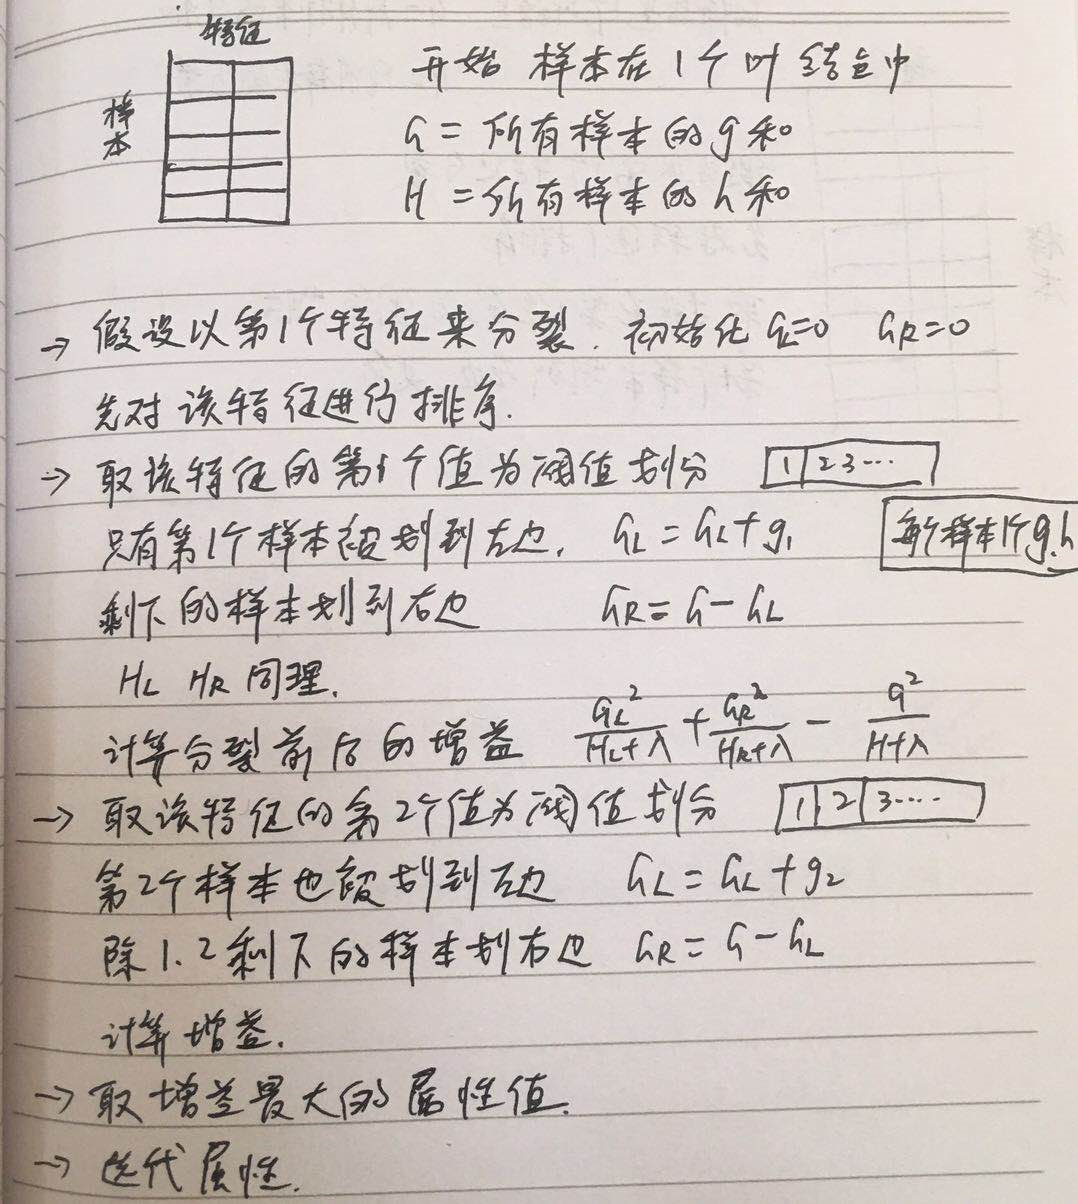 特征
样本
开始 样本在1个叶结点中
G = 所有样本的g和
H = 所有样本的h和
→ 假设以第1个特征来分裂. 初始化 GL=0 GR=0
先对该特征进行排序.
→ 取该特征的第1个值为阈值划分 1 | 2 3 ...
只有第1个样本被划到左边, GL = GL + g1
每个样本1个g.h
剩下的样本划到右边 GR = G - GL
HL HR 同理.
计算分裂前后的增益 GL²/(HL+λ) + GR²/(HR+λ) - G²/(H+λ)
→ 取该特征的第2个值为阈值划分 1 | 2 | 3 ....
第2个样本也被划到左边 GL = GL + g2
除1.2剩下的样本划右边 GR = G - GL
计算增益.
→ 取增益最大的属性值.
→ 迭代属性.